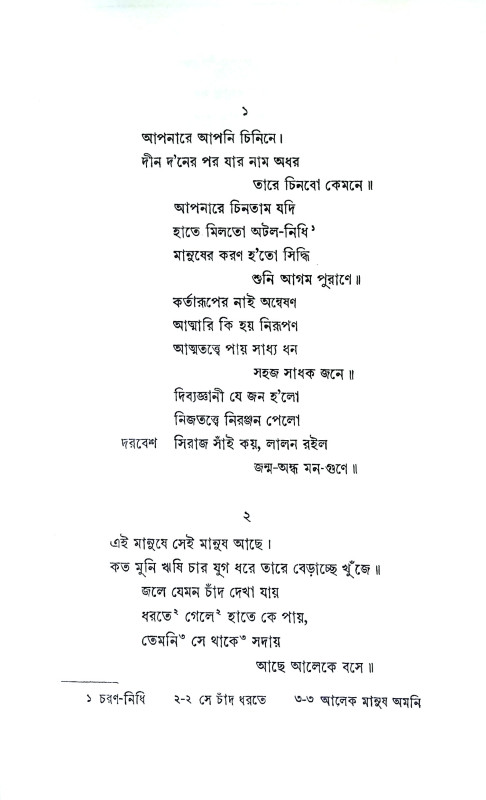 ১
আপনারে আপনি চিনিনে।
দীন দ'নের পর যার নাম অধর
তারে চিনবো কেমনে॥
আপনারে চিনতাম যদি
হাতে মিলতো অটল-নিধি১
মানুষের করণ হ'তো সিদ্ধি
শুনি আগম পুরাণে॥
কর্তারূপের নাই অন্বেষণ
আত্মারি কি হয় নিরূপণ
আত্মতত্ত্বে পায় সাধ্য ধন
সহজ সাধক জনে॥
দিব্যজ্ঞানী যে জন হ'লো
নিজতত্ত্বে নিরঞ্জন পেলো
দরবেশ সিরাজ সাঁই কয়, লালন রইল
জন্ম-অন্ধ মন-গুণে॥
২
এই মানুষে সেই মানুষ আছে।
কত মুনি ঋষি চার যুগ ধরে তারে বেড়াচ্ছে খুঁজে॥
জলে যেমন চাঁদ দেখা যায়
ধরতে২ গেলে২ হাতে কে পায়,
তেমনি৩ সে থাকে৩ সদায়
আছে আলেকে বসে॥
১ চরণ-নিধি ২-২ সে চাঁদ ধরতে ৩-৩ আলেক মানুষ অমনি